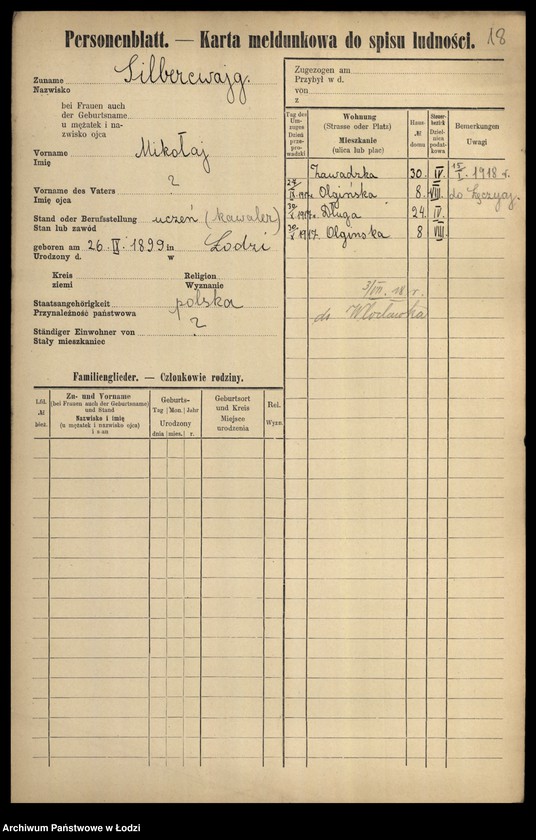 Personenblatt. — Karta meldunkowa do spisu ludności. 18
Zuname Silbercwajg.
Nazwisko
bei Frauen auch
der Geburtsname
u mężatek i na-
zwisko ojca
Vorname Mikołaj
Imię
Vorname des Vaters ?
Imię ojca
Stand oder Berufsstellung uczeń (kawaler)
Stan lub zawód
geboren am 26. IV. 1899 in Łodzi
Urodzony d. w
Kreis Religion
ziemi Wyznanie
Staatsangehörigkeit polska
Przynależność państwowa
Ständiger Einwohner von ?
Stały mieszkaniec
Familienglieder. — Członkowie rodziny.
Lfd.
№
bież.
Zu- und Vorname
(bei Frauen auch der Geburtsname)
und Stand
Nazwisko i imię
(u mężatek i nazwisko ojca)
i stan
Geburts-
Tag Mon. Jahr
Urodzony
dnia mies. r.
Geburtsort
und Kreis
Miejsce
urodzenia
Rel.
Wyzn.
Zugezogen am
Przybył w d.
von
z
Tag des
Um-
zuges
Dzień
prze-
pro-
wadzki
Wohnung
(Strasse oder Platz)
Mieszkanie
(ulica lub plac)
Haus-
№
domu
Steuer-
bezirk
Dziel-
nica
podat-
kowa
Bemerkungen
Uwagi
Zawadzka 30. IV. 15/I. 1918 r.
Olgińska 8. VIII. do Łęczycy.
Długa 24. IV.
30/X 1917. Olginska 8 VIII
3/VII. 18 r.
do Włocławka
Archiwum Państwowe w Łodzi